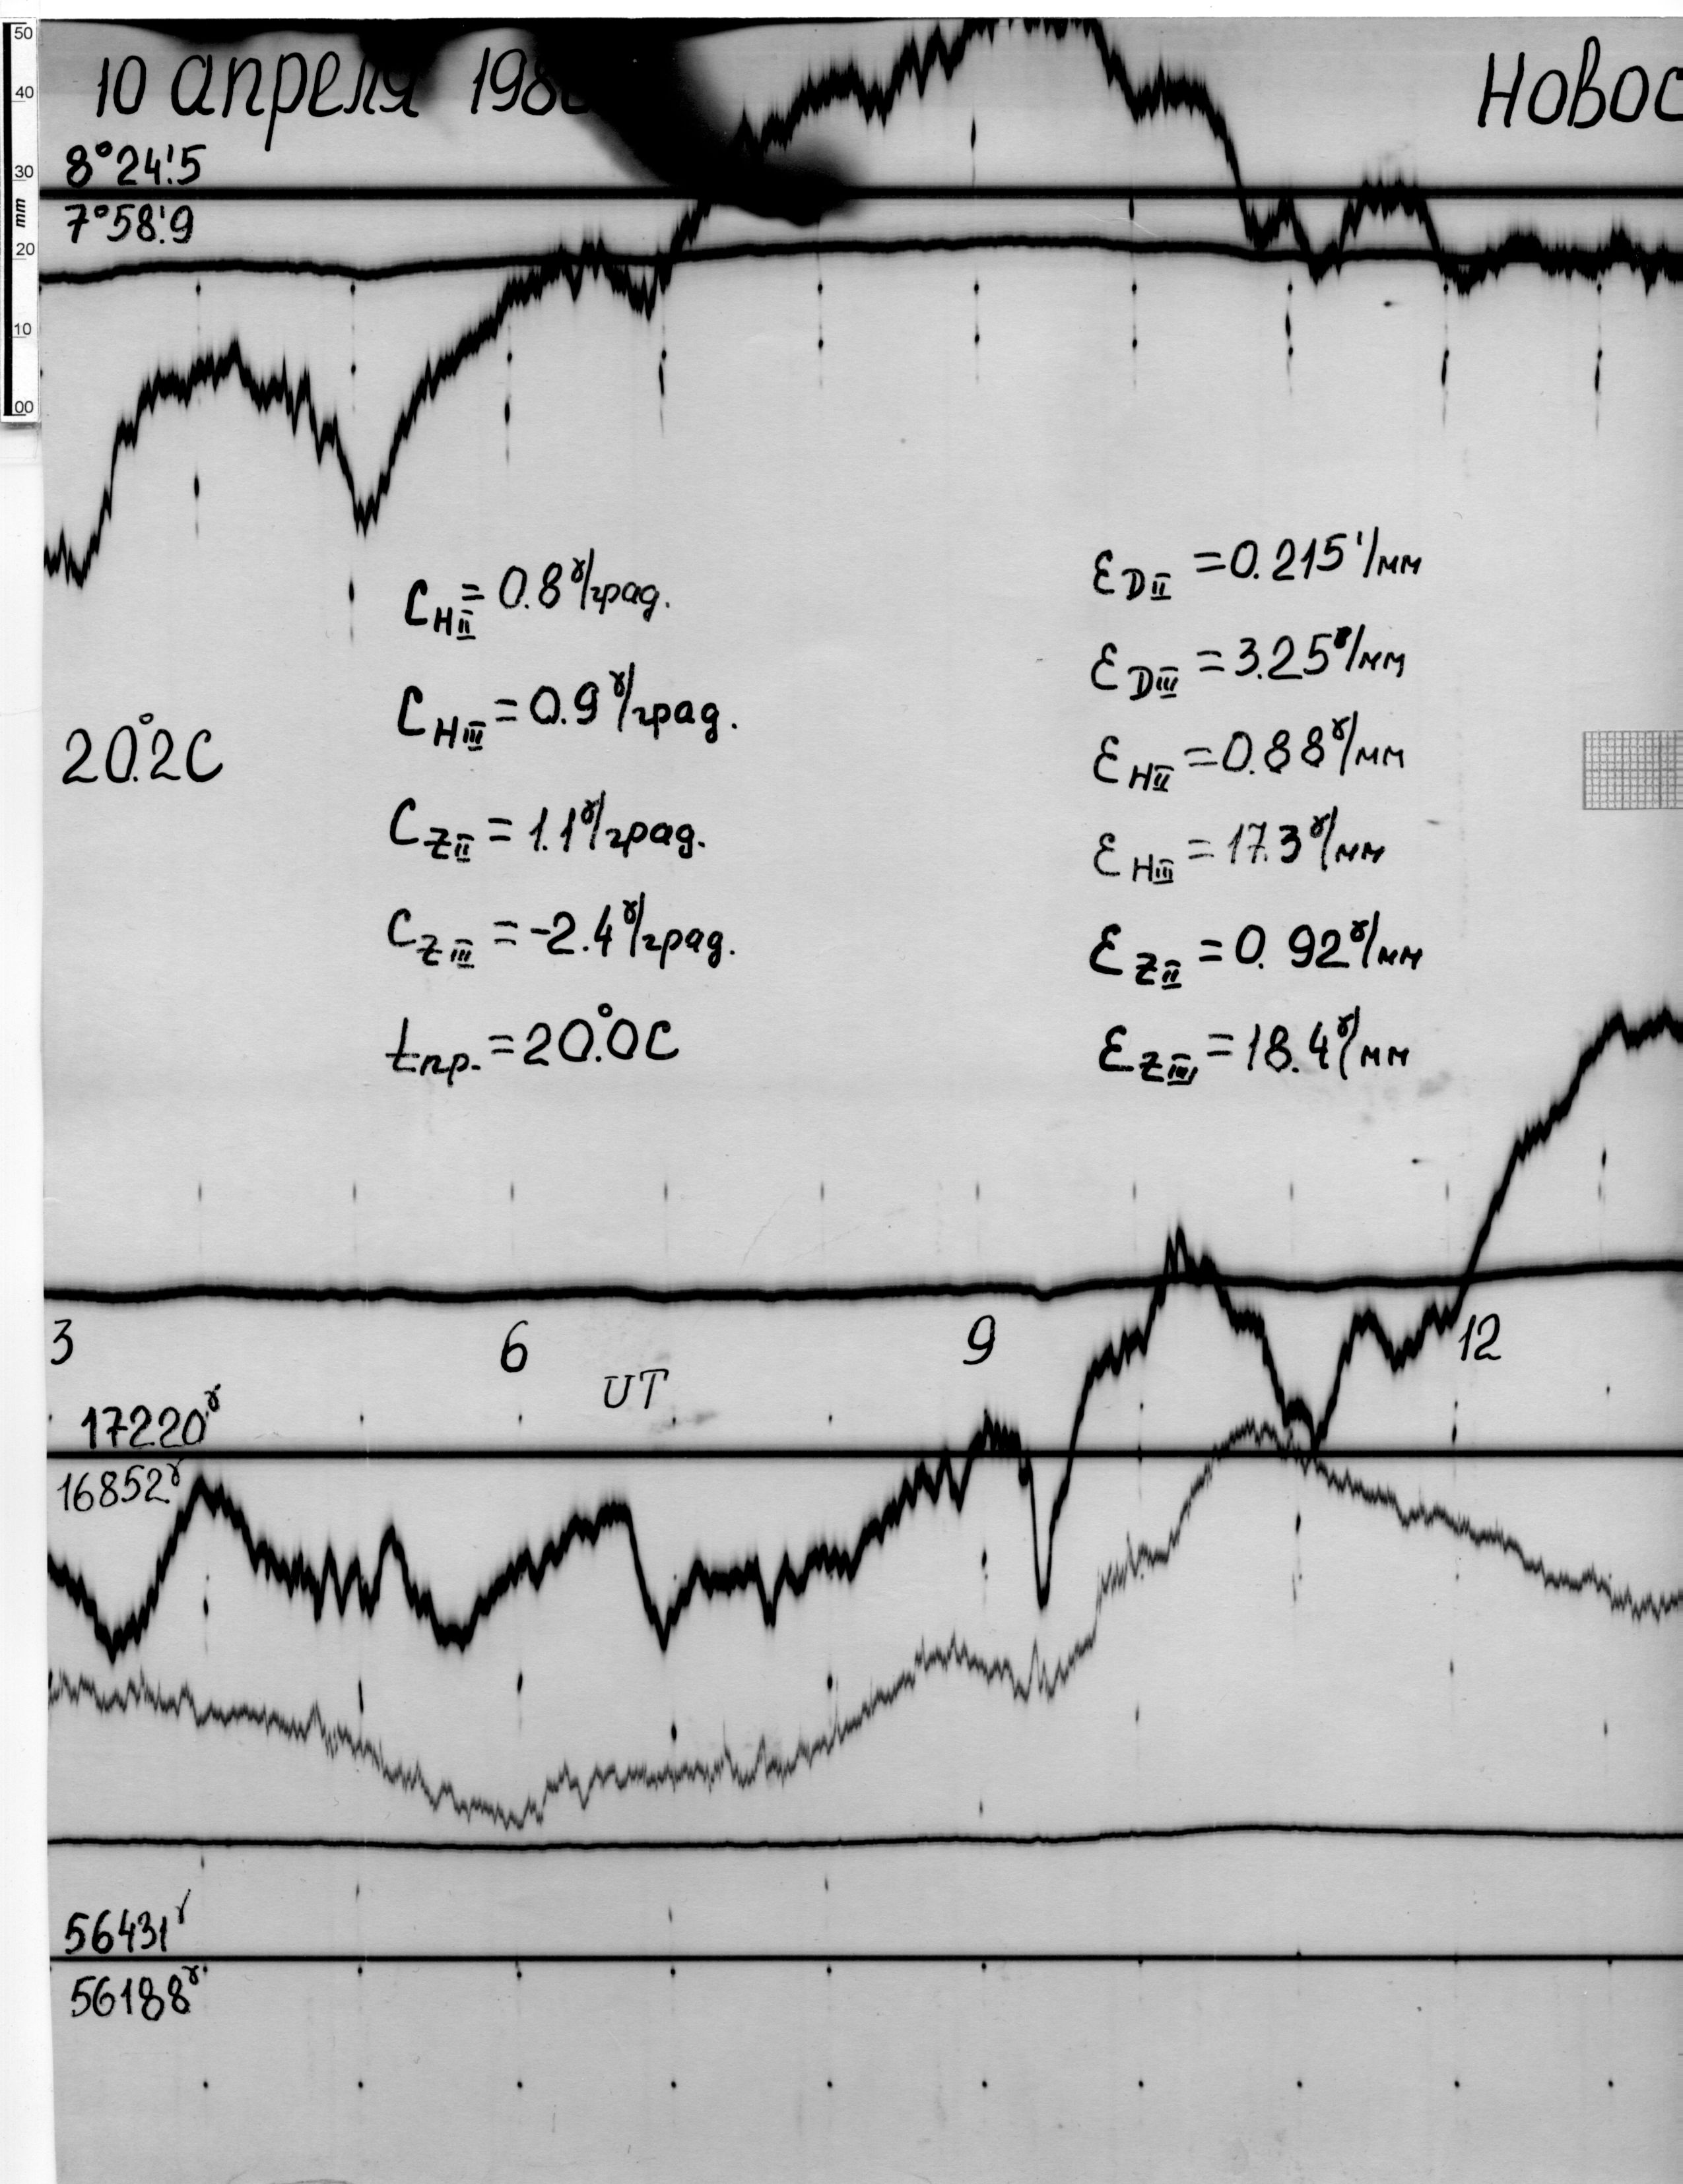 50
40
30
mm
20
10
00
10 апреля
Новос
8°24!5
7°58!9
C_HII = 0.8γ/град.
C_HIII = 0.9γ/град.
C_ZII = 1.1γ/град.
C_ZIII = -2.4γ/град.
tпр. = 20°.0C
20°.2C
ε_DII = 0.215'/мм
ε_DIII = 3.25γ/мм
ε_HII = 0.88γ/мм
ε_HIII = 17.3γ/мм
ε_ZII = 0.92γ/мм
ε_ZIII = 18.4γ/мм
3 6 9 12
UT
17220γ
16852γ
56431γ
56188γ